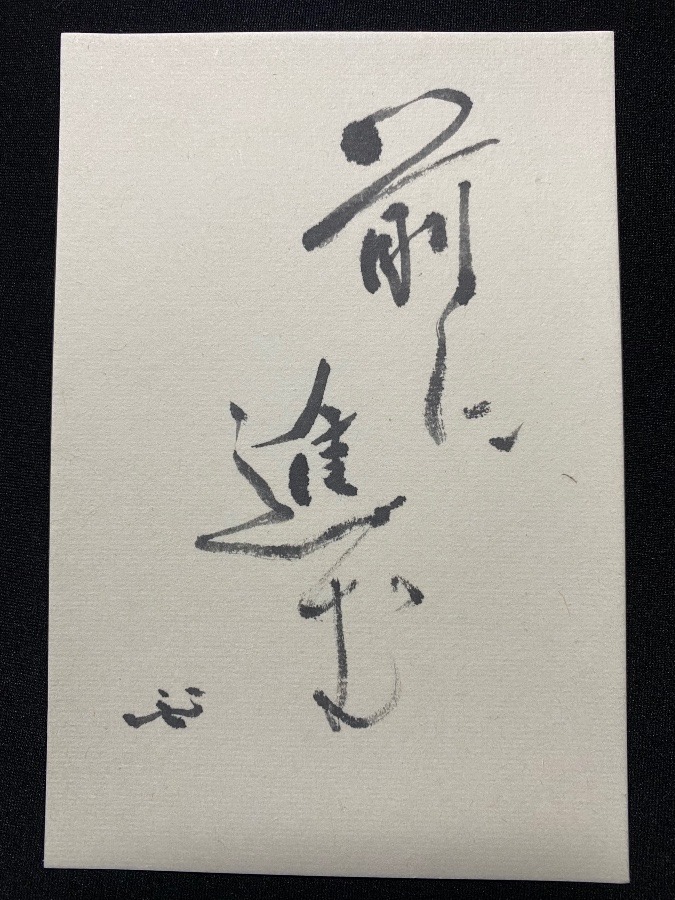 前に
進む